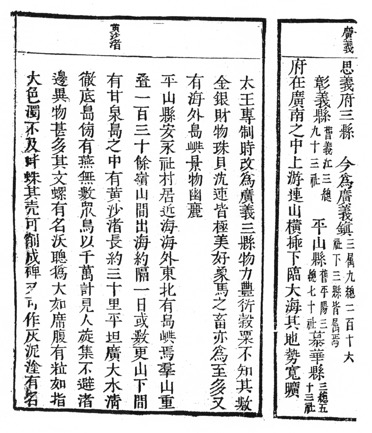 廣義
思義府三縣 今為廣義鎮 三屬九總二百十六社下三縣皆屬焉
彰義縣 舊義江三總九十三社 平山縣 舊平陽三總七十社 慕華縣 三總五十三社
府在廣南之中上游連山橫極下臨大海其地勢寬曠
黃沙渚
太王專制時改為廣義三縣物力豐衍穀粟不知其數
金銀財物珠貝沈速皆極美好象馬之畜亦為至多又
有海外島嶼景物幽麗
平山縣安永社村居近海海外東北有島嶼焉羣山重
疊一百三十餘嶺山間出海約隔一日或數更山下間
有甘泉島之中有黃沙渚長約三十里平坦廣大水清
徹底島傍有燕無數眾鳥以千萬計見人旋集不避渚
邊異物甚多其文螺有名沃聰為大如席腹有粒如指
大色濁不及蚌蛛其壳可削成碑又可作灰泥塗有名